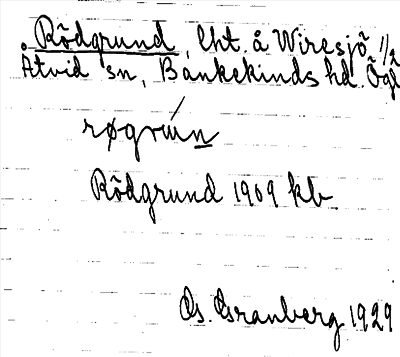 Rödgrund, lht. å Wiresjö 1/2
Åtvid sn, Bankekinds hd. Ögl
Rödgrund 1909 kb
Gs. Granberg 1929